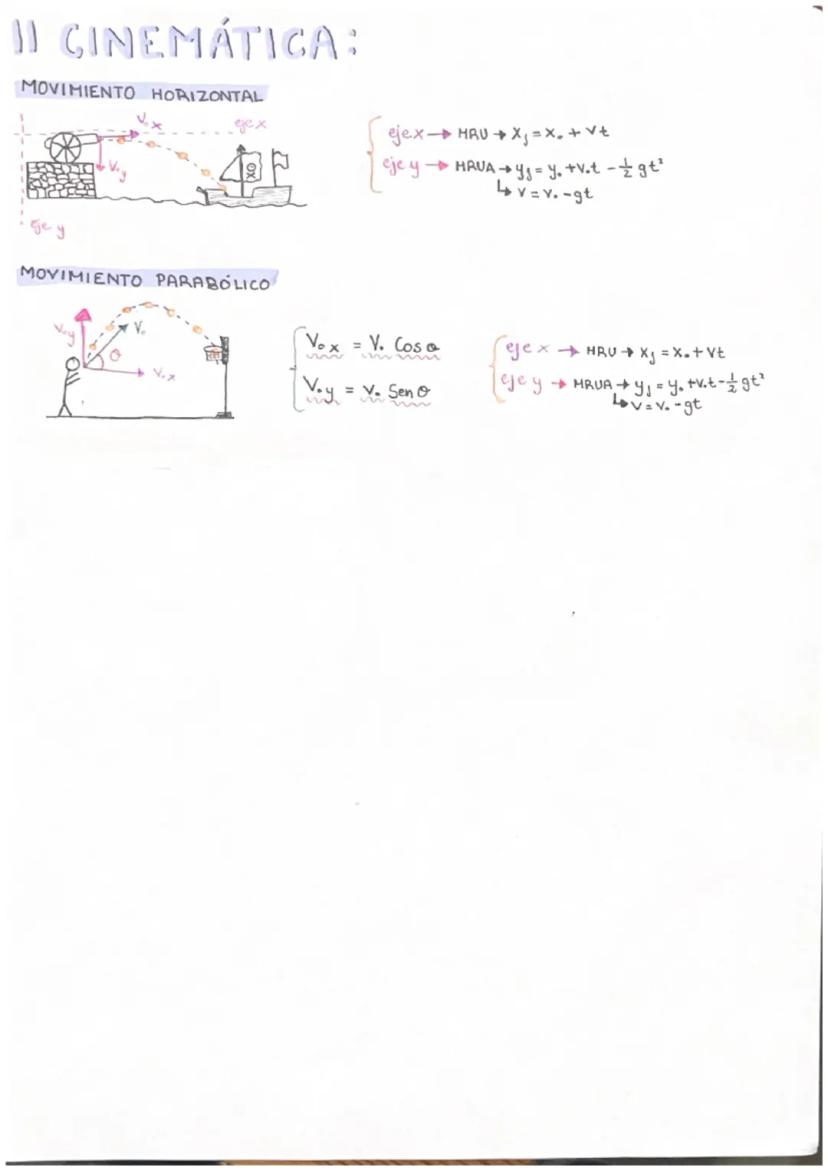 11 CINEMÁTICA:
MOVIMIENTO HORIZONTAL
V₀x
eje x
V₀y
eje y
eje x → MRU → xf = x₀ + vt
eje y → MRUA → yf = y₀ + v₀t - 1/2 gt²
↳ v = v₀ - gt
MOVIMIENTO PARABÓLICO
V₀y
V₀
θ
V₀x
V₀x = V₀ Cos θ
V₀y = V₀ Sen θ
eje x → MRU → xf = x₀ + vt
eje y → MRUA → yf = y₀ + v₀t - 1/2 gt²
↳ v = v₀ - gt